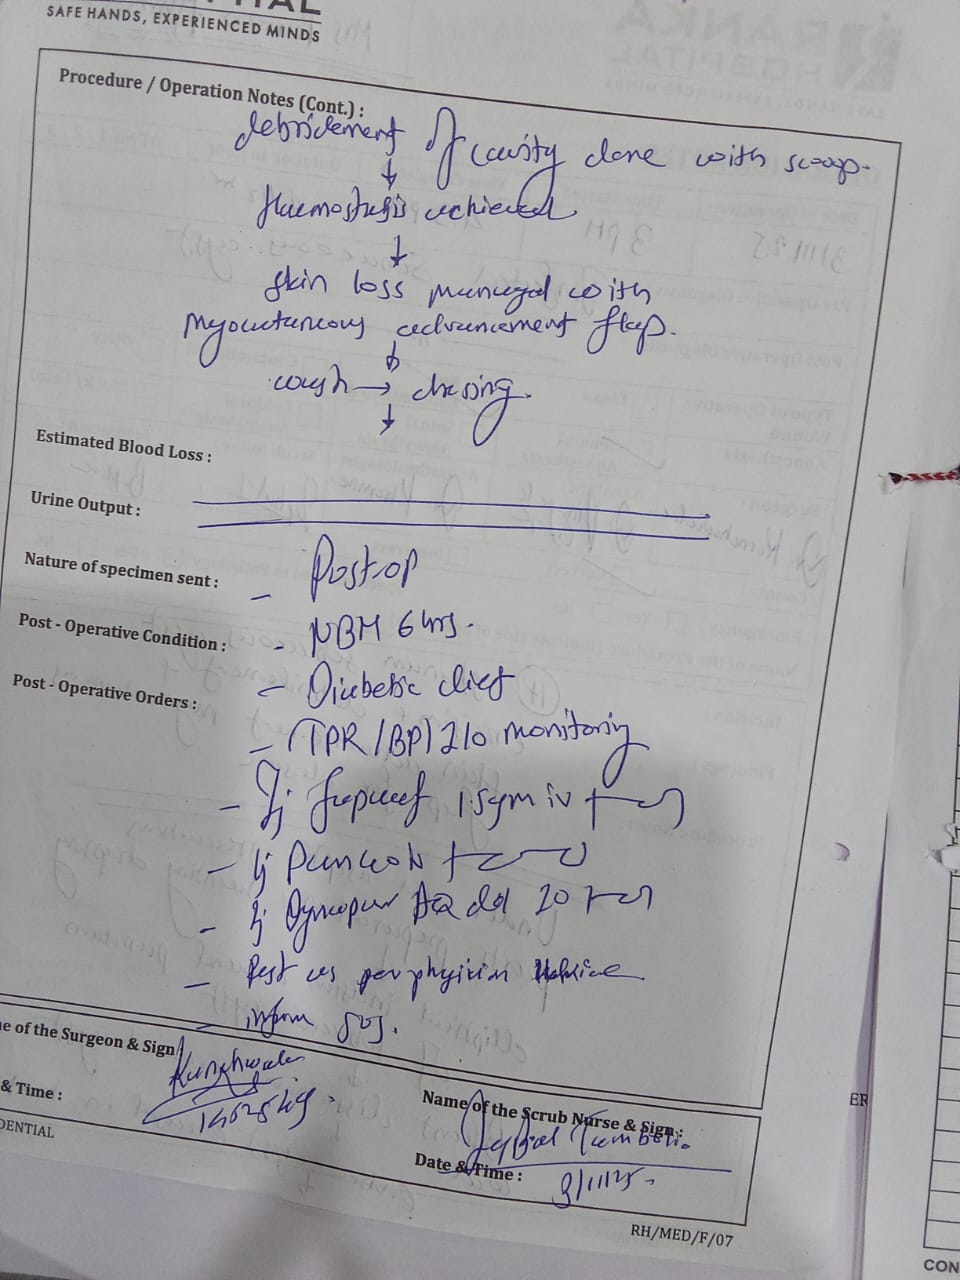 SAFE HANDS, EXPERIENCED MINDS
Procedure / Operation Notes (Cont.) :
debridement of cavity done with scoop.
↓
Haemostasis achieved
↓
skin loss managed with
myocutaneous advancement flap.
↓
wash → dressing.
↓
Estimated Blood Loss :
Urine Output :
Nature of specimen sent :
Post-op
Post - Operative Condition :
- NBM 6 hrs.
Post - Operative Orders :
- Diabetic diet
- (TPR/BP) I/O monitoring
- Inj 1.5 gm iv
- Inj Pan
- Inj
- Rest as per physician advice
- inform SOS.
e of the Surgeon & Sign
& Time :
DENTIAL
Name of the Scrub Nurse & Sign :
Date & Time :
3/11/25
RH/MED/F/07
ER
CON